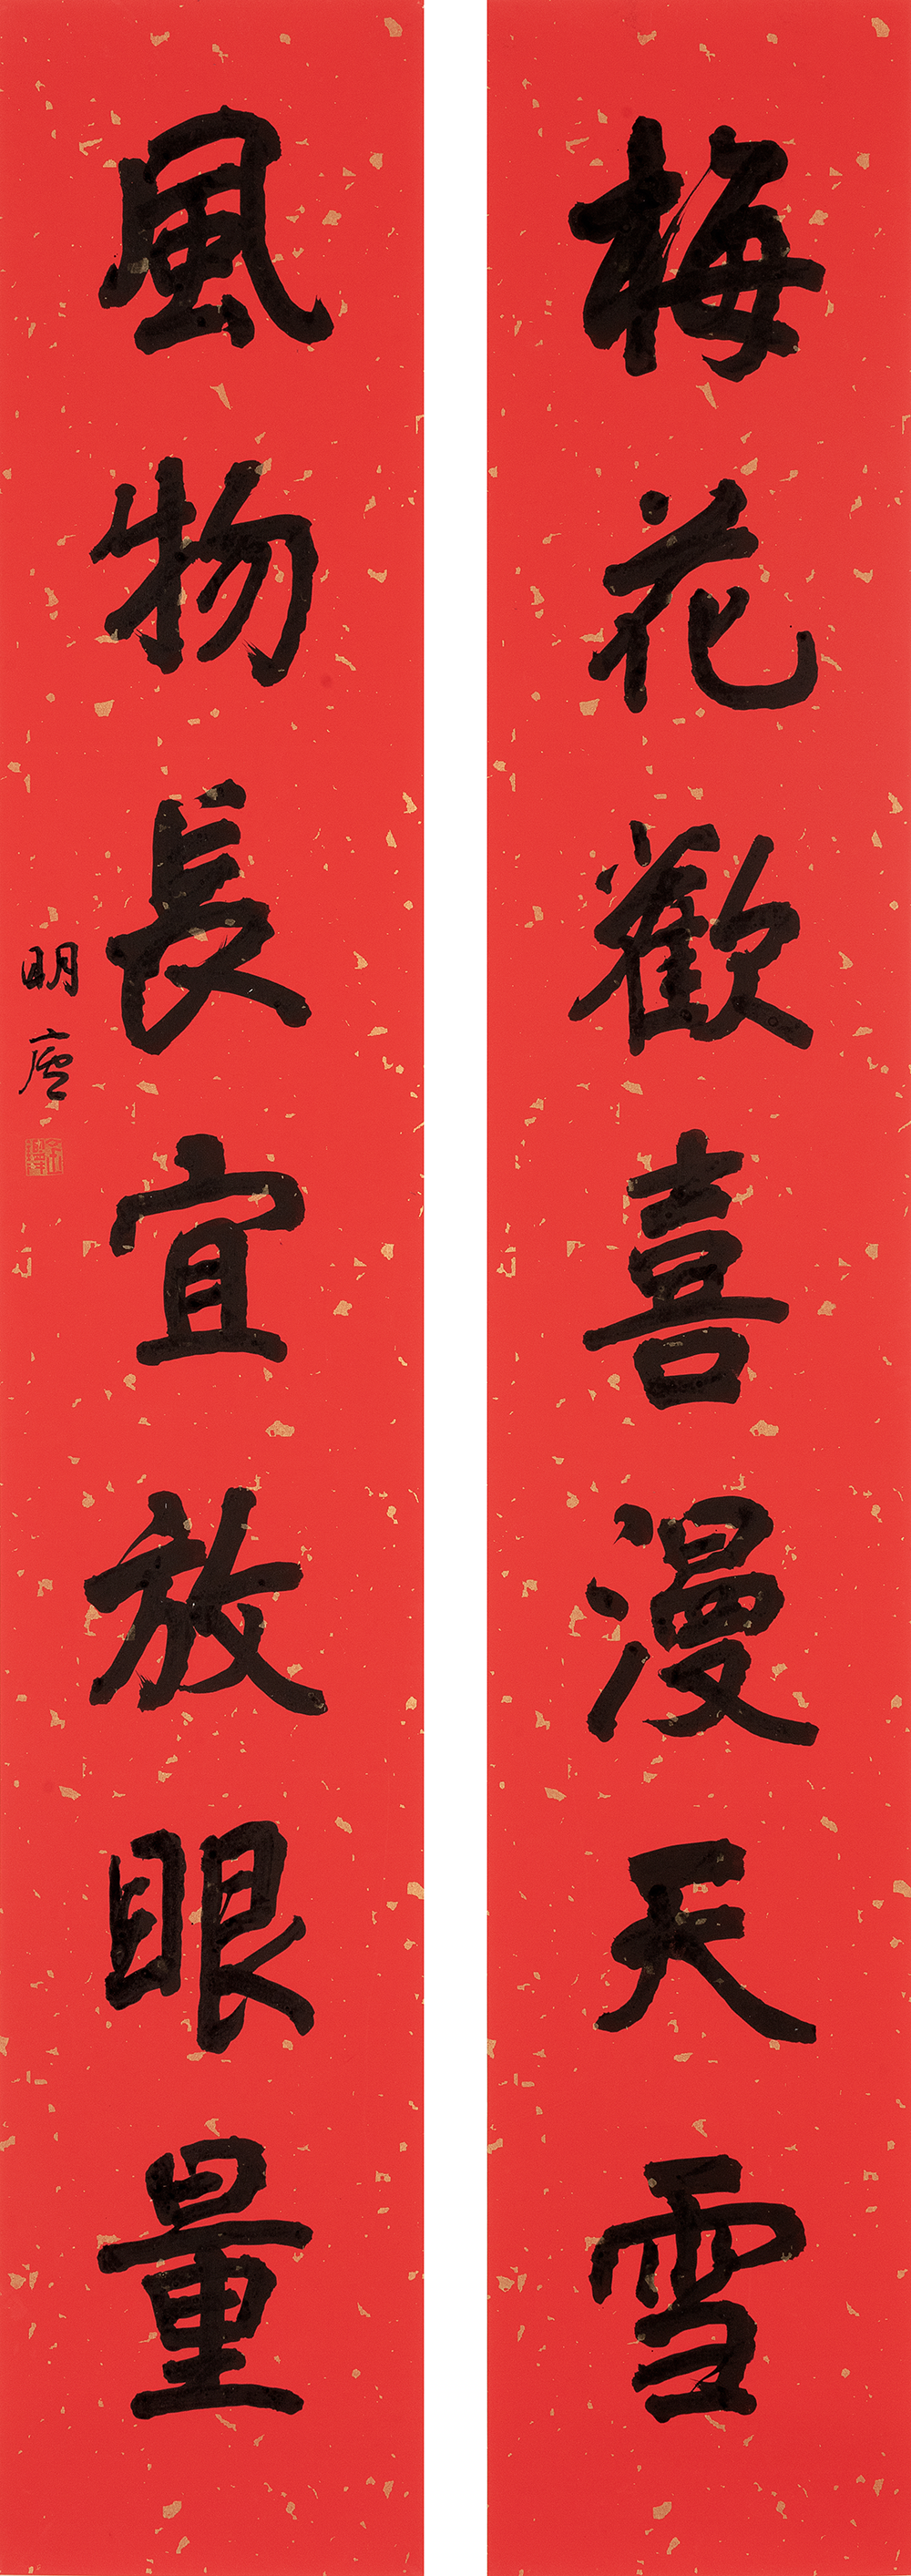 梅花歡喜漫天雪
風物長宜放眼量
明廬